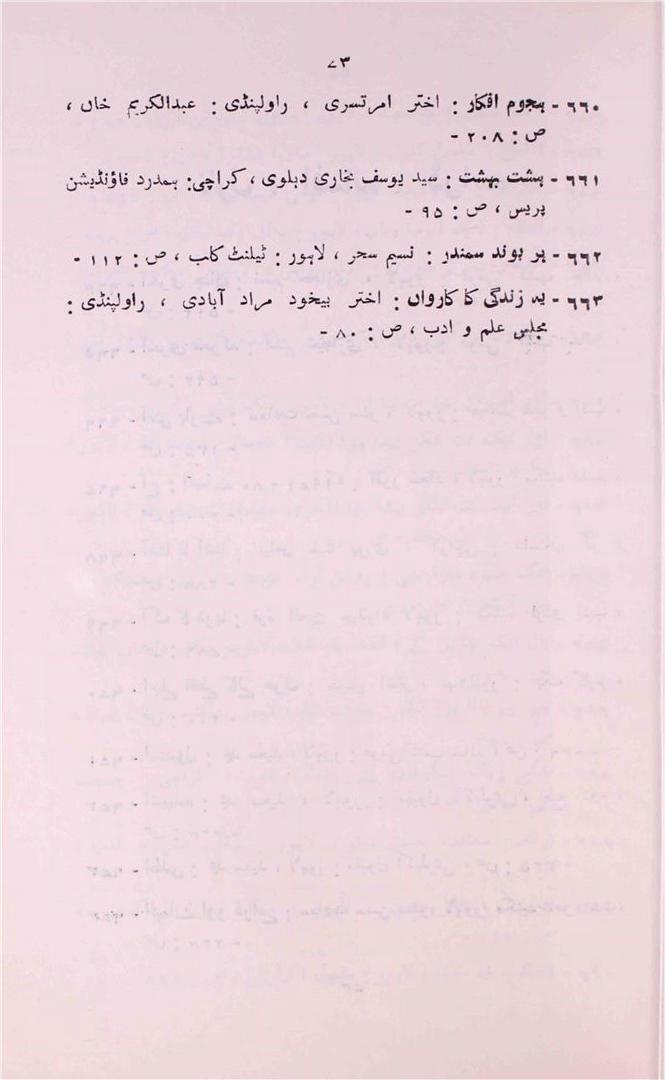 ۷۳
۶۶۰ - ہجوم افکار : اختر امرتسری ، راولپنڈی : عبدالکریم خاں ،
ص : ۲۰۸ -
۶۶۱ - ہشت بہشت : سید یوسف بخاری دہلوی ، کراچی : ہمدرد فاؤنڈیشن
پریس ، ص : ۹۵ -
۶۶۲ - ہر بوند سمندر : نسیم سحر ، لاہور : ٹیلنٹ کلب ، ص : ۱۱۲ -
۶۶۳ - یہ زندگی کا کارواں : اختر بیخود مراد آبادی ، راولپنڈی :
مجلس علم و ادب ، ص : ۸۰ -